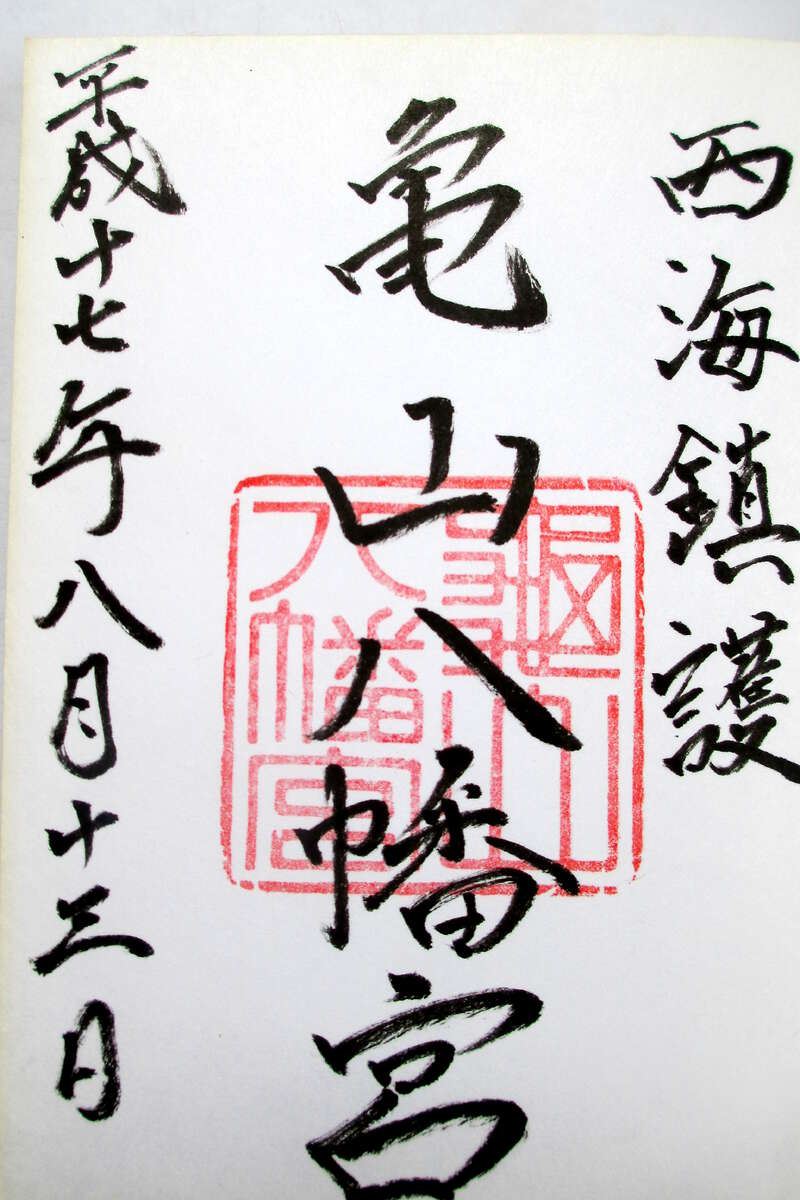 西海鎮護
亀山八幡宮
平成十七年八月十三日
龜山
八幡宮